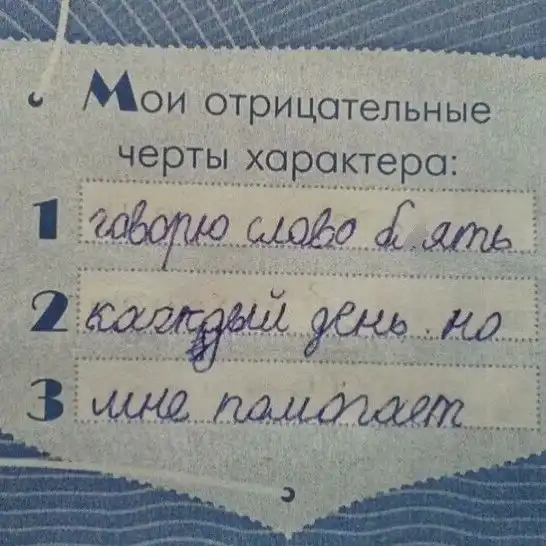 Мои отрицательные
черты характера:
1 говорю слово б ять
2 каждый день но
3 мне помогает